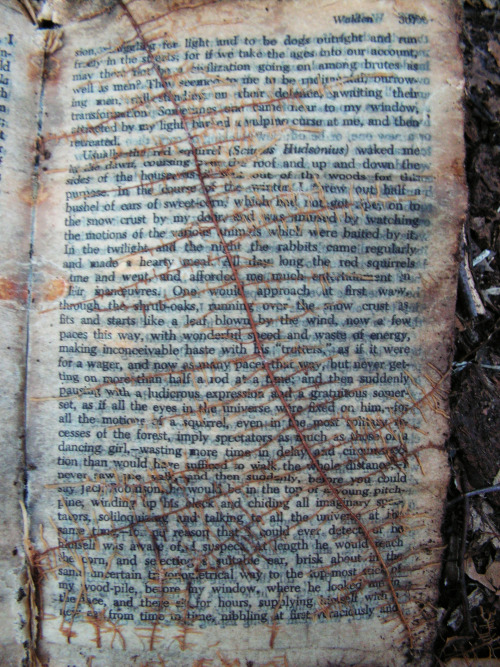 Walden
for light and to be dogs outright and run
freely in the streets; for if we take the ages into our account,
may there not be a civilization going on among brutes as
well as men? They seemed to me to be rudimental, burrow-
ing men, still standing on their defence, awaiting their
transformation. Sometimes one came near to my window,
attracted by my light, barked a vulpine curse at me, and then
retreated.
Usually the red squirrel (Sciurus Hudsonius) waked me
in the dawn, coursing over the roof and up and down the
sides of the house, as if sent out of the woods for this
purpose. In the course of the winter I threw out half a
bushel of ears of sweet-corn, which had not got ripe, on to
the snow crust by my door, and was amused by watching
the motions of the various animals which were baited by it.
In the twilight and the night the rabbits came regularly
and made a hearty meal. All day long the red squirrels
came and went, and afforded me much entertainment by
their manœuvres. One would approach at first
through the shrub-oaks, running over the snow crust by
fits and starts like a leaf blown by the wind, now a few
paces this way, with wonderful speed and waste of energy,
making inconceivable haste with his "trotters," as if it were
for a wager, and now as many paces that way, but never get-
ting on more than half a rod at a time; and then suddenly
pausing with a ludicrous expression and a gratuitous somer-
set, as if all the eyes in the universe were fixed on him,—for
all the motions of a squirrel, even in the most solitary re-
cesses of the forest, imply spectators as much as those of a
dancing girl,—wasting more time in delay and circumspec-
tion than would have sufficed to walk the whole distance,—I
never saw one walk,—and then suddenly, before you could
say Jack Robinson, he would be in the top of a young pitch-
pine, winding up his clock and chiding all imaginary spec-
tators, soliloquizing and talking to all the universe at the
same time,—for no reason that I could ever detect, or he
himself was aware of, I suspect. At length he would reach
the corn, and selecting a suitable ear, brisk about in the
same uncertain trigonometrical way to the top-most stick of
my wood-pile, before my window, where he looked me in
the face, and there sit for hours, supplying himself with a
new ear from time to time, nibbling at first voraciously and